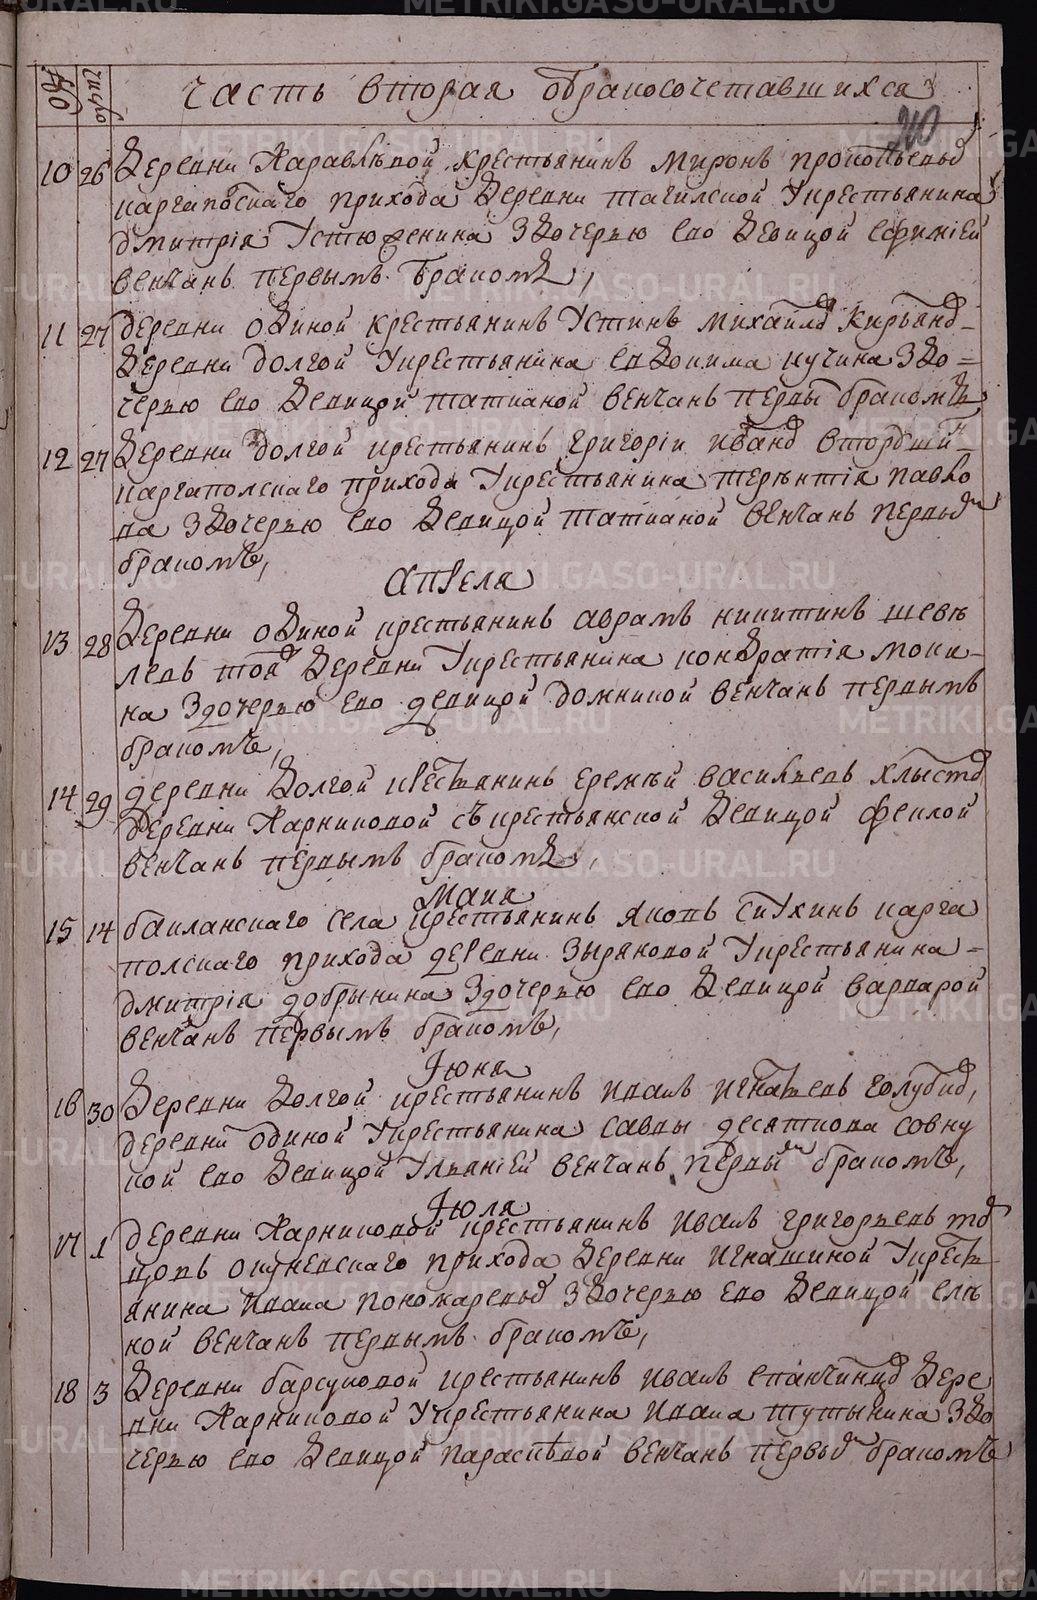 METRIKI.GASO-URAL.RU
число
часть вторая обракосочетавшихся
20
10 26 Деревни Журавлевой крестьянинъ Миронъ прокопьевъ
каргапольскаго прихода Деревни тагилской Укрестьянина
дмитрия Устюженина Здочерью ево Девицой Ефимией
венчанъ первымъ бракомъ,
11 27 деревни одиной крестьянинъ Устинъ михайловъ
Деревни долгой Укрестьянина Евдокима кучина Здо=
черью ево Девицой татианой венчанъ первы бракомъ
12 27 Деревни долгой крестьянинъ григорiй ивановъ
каргаполскаго прихода Укрестьянина терентiя павло
ва Здочерью ево Девицой татианой венчанъ первым
бракомъ,
Апреля
13 28 Деревни одиной крестьянинъ аврамъ никитинъ шеве
левъ той Деревни Укрестьянина кондратiя моки-
на Здочерью ево девицой домникой венчанъ первымъ
бракомъ,
14 29 деревни Долгой крестьянинъ еремей васильевъ хлыстов
деревни съ крестьянской Девицой феклой
венчанъ первымъ бракомъ,
Маия
15 14 баиланскаго села крестьянинъ яковъ карга
полскаго прихода деревни Зыряновой Укрестьянина=
дмитрiя добрынина Здочерью ево Девицой варварой
венчанъ первымъ бракомъ,
Июня
16 30 Деревни Долгой крестьянинъ иванъ игнатьевъ голубов,
деревни одиной Укрестьянина саввы десяткова совну
кой ево Девицой Ульянiей венчанъ первым бракомъ,
Июля
17 1 деревни крестьянинъ иванъ григорьевъ
окуневскаго прихода Деревни игнашиной Укресть
янина ивана пономарева Здочерью ево Девицой еле
ной венчанъ первымъ бракомъ,
18 3 Деревни барсуковой крестьянинъ иванъ епанчинцов Дере
вни Укрестьянина ивана тутынина Здо
черью ево Девицой параскевой венчанъ первым бракомъ